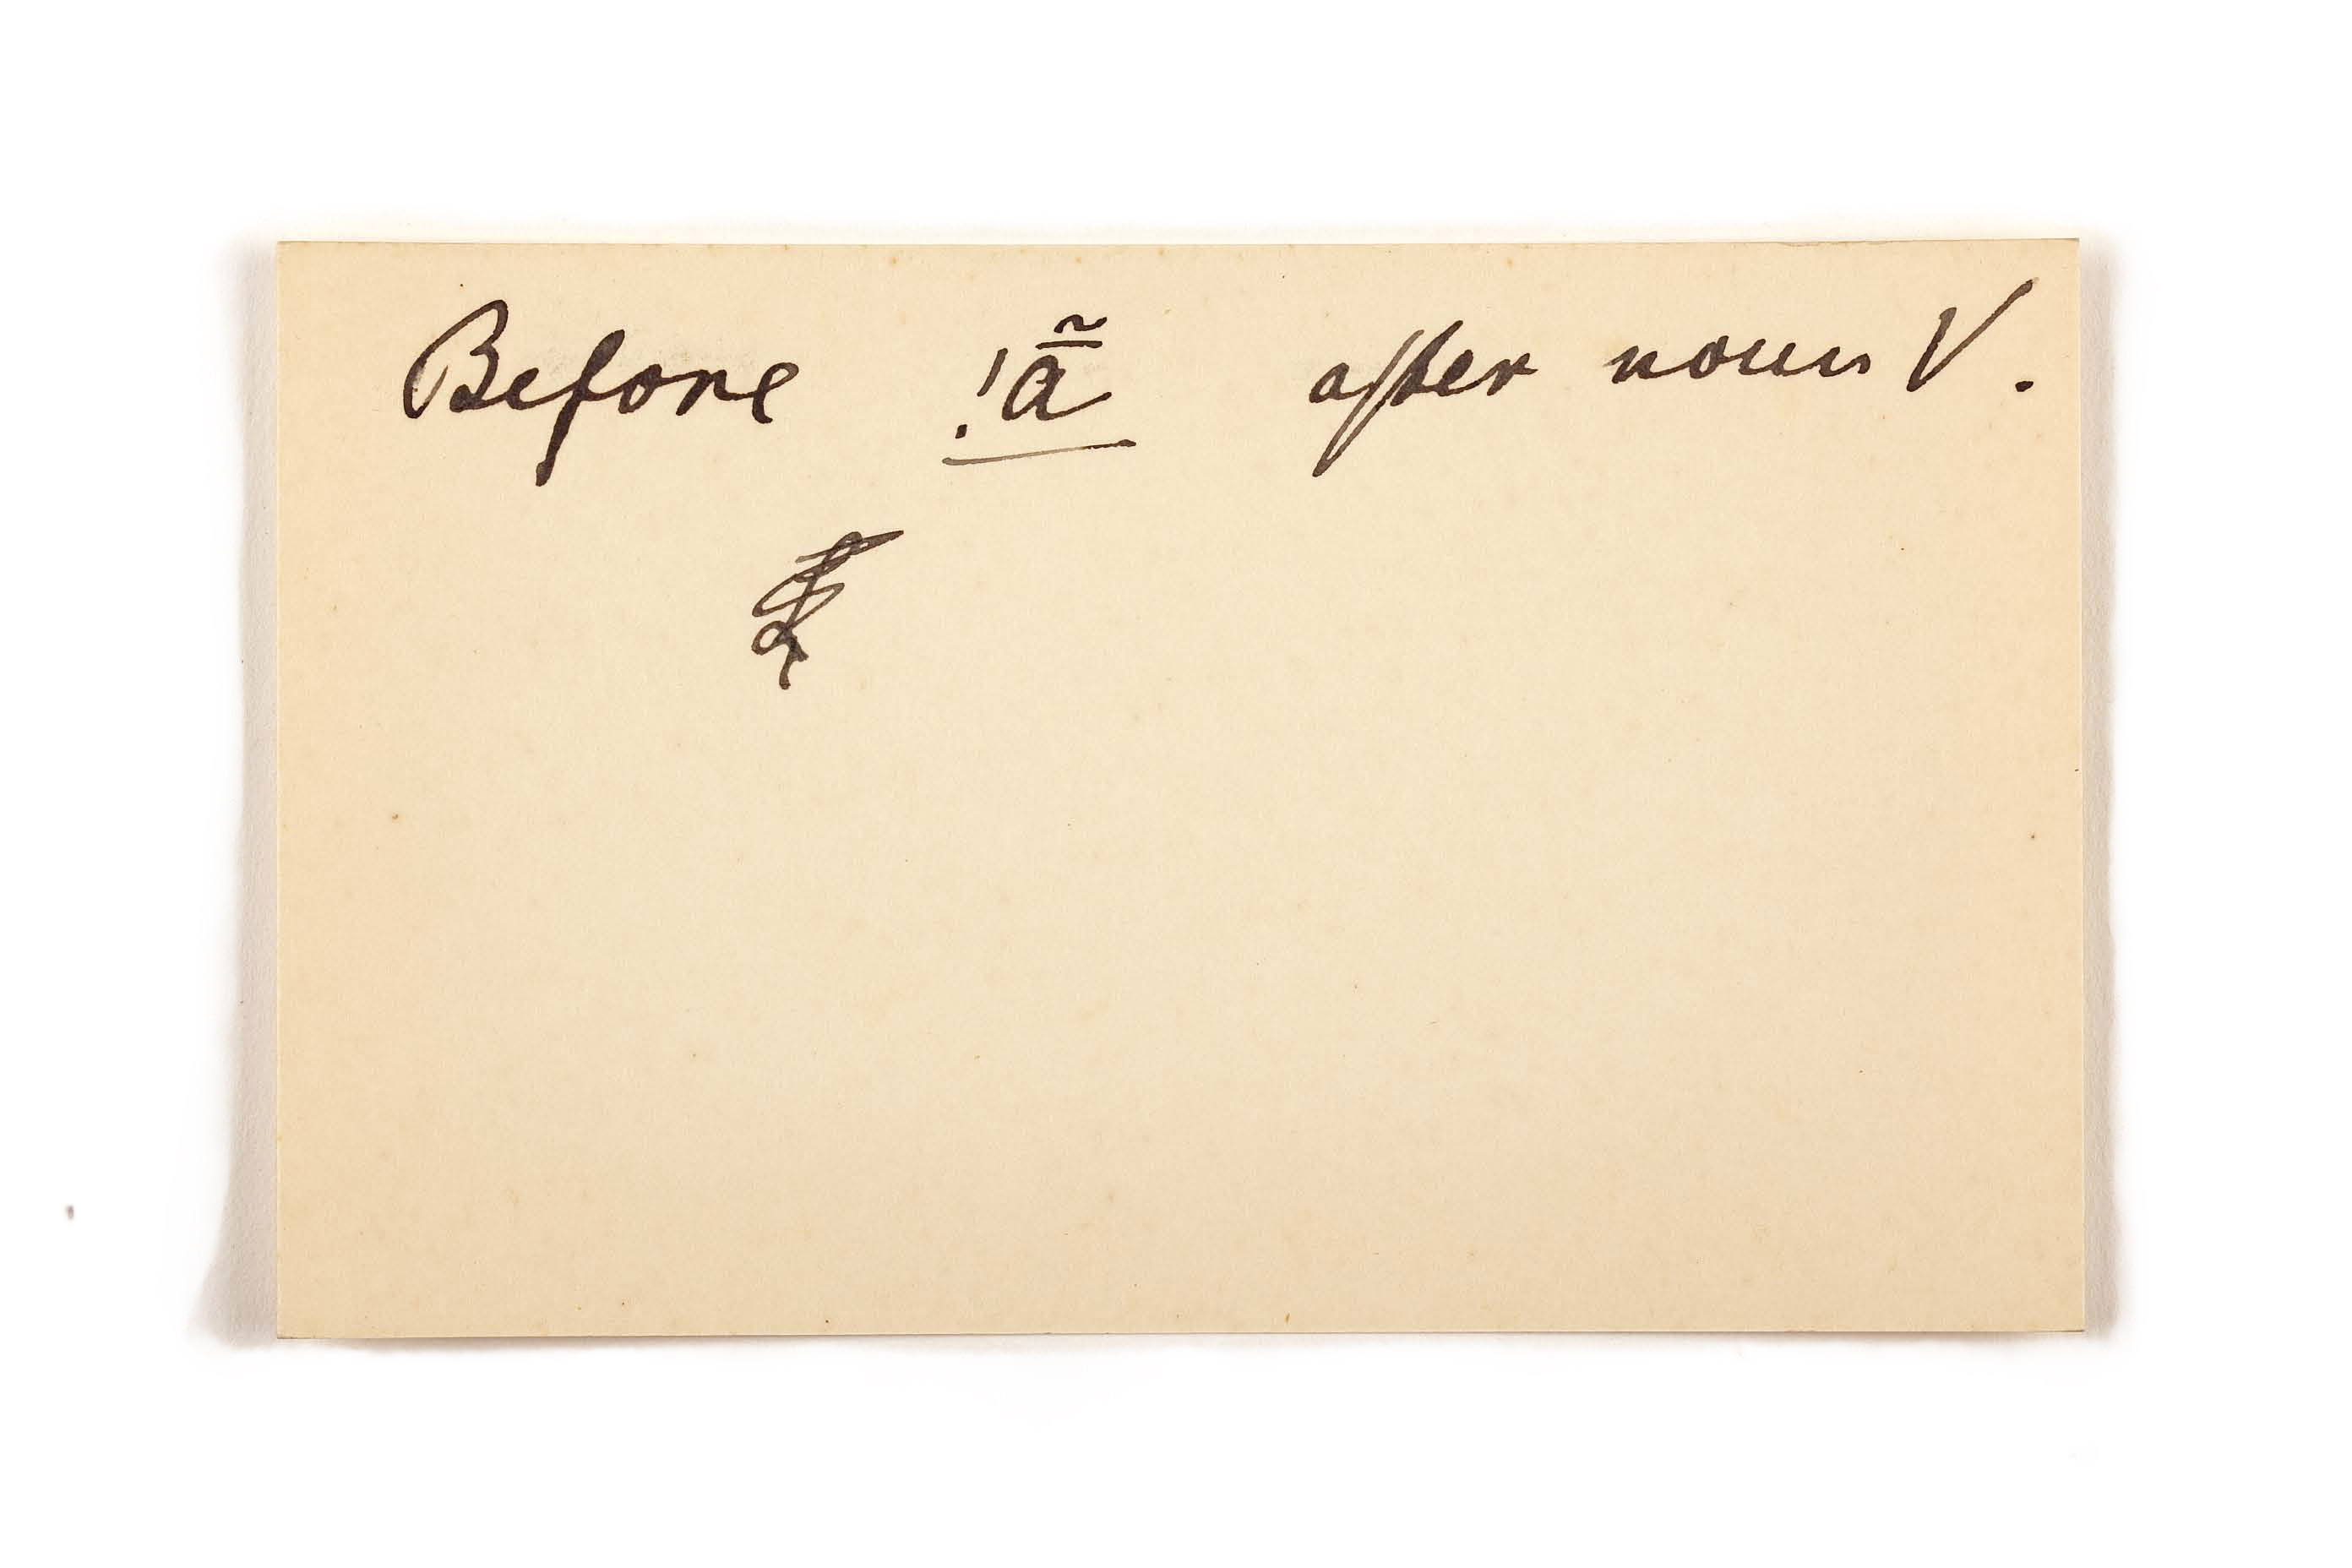 Before !ā̃ after noun V.